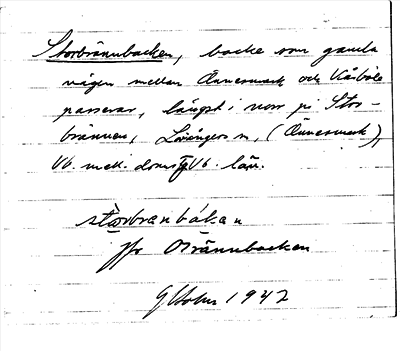 Storbrännbacken, backe som gamla
vägen mellan Ånnesmark och Kåsböle
passerar, längst i norr på Stor-
brännan, Lövångers sn, (Ånnesmark),
Vb. mell. doms. Vb. län.
storbranbákan
jfr Brännbacken
G Holm 1942